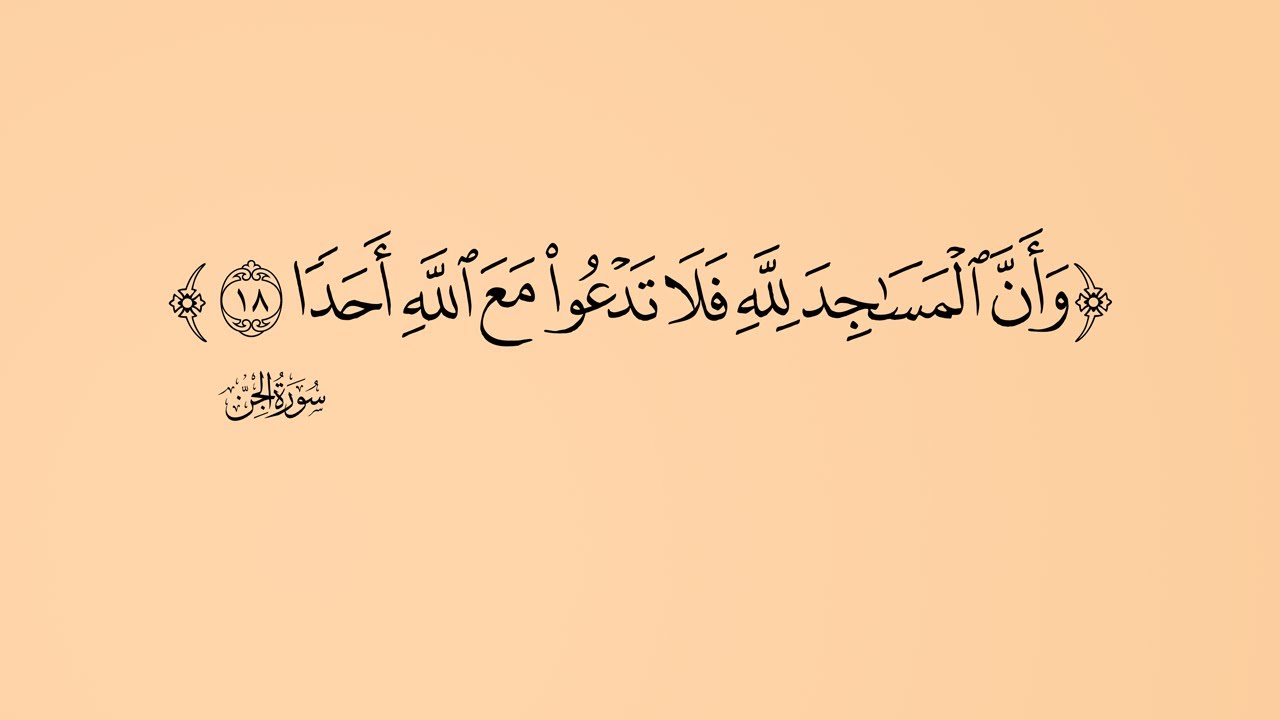 ﴿وَأَنَّ ٱلْمَسَـٰجِدَ لِلَّهِ فَلَا تَدْعُوا۟ مَعَ ٱللَّهِ أَحَدًا ١٨﴾
سُورَةُ الجِنّ